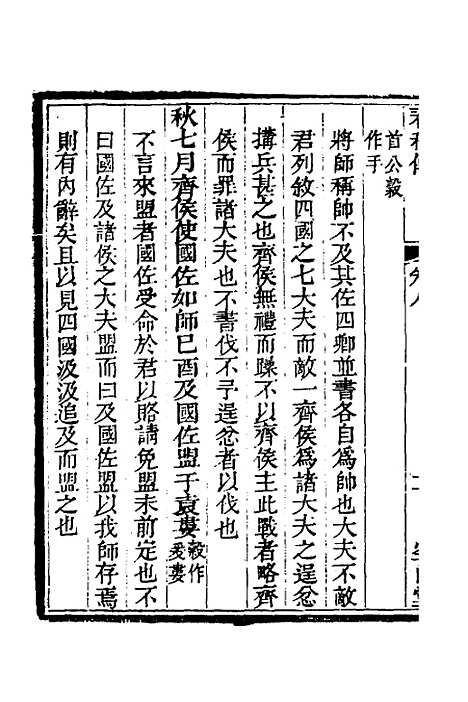 首公穀
作手
將師稱帥不及其佐四卿並書各自爲帥也大夫不敵
君列敘四國之七大夫而敵一齊侯爲諸大夫之逞忿
搆兵甚之也齊侯無禮而躁不以齊侯主此戰者略齊
侯而罪諸大夫也不書伐不予逞忿者以伐也
秋七月齊侯使國佐如師已酉及國佐盟于袁婁穀作
爰婁
不言來盟者國佐受命於君以賂請免盟未前定也不
曰國佐及諸侯之大夫盟而曰及國佐盟以我師存焉
則有內辭矣且以見四國汲汲追及而盟之也